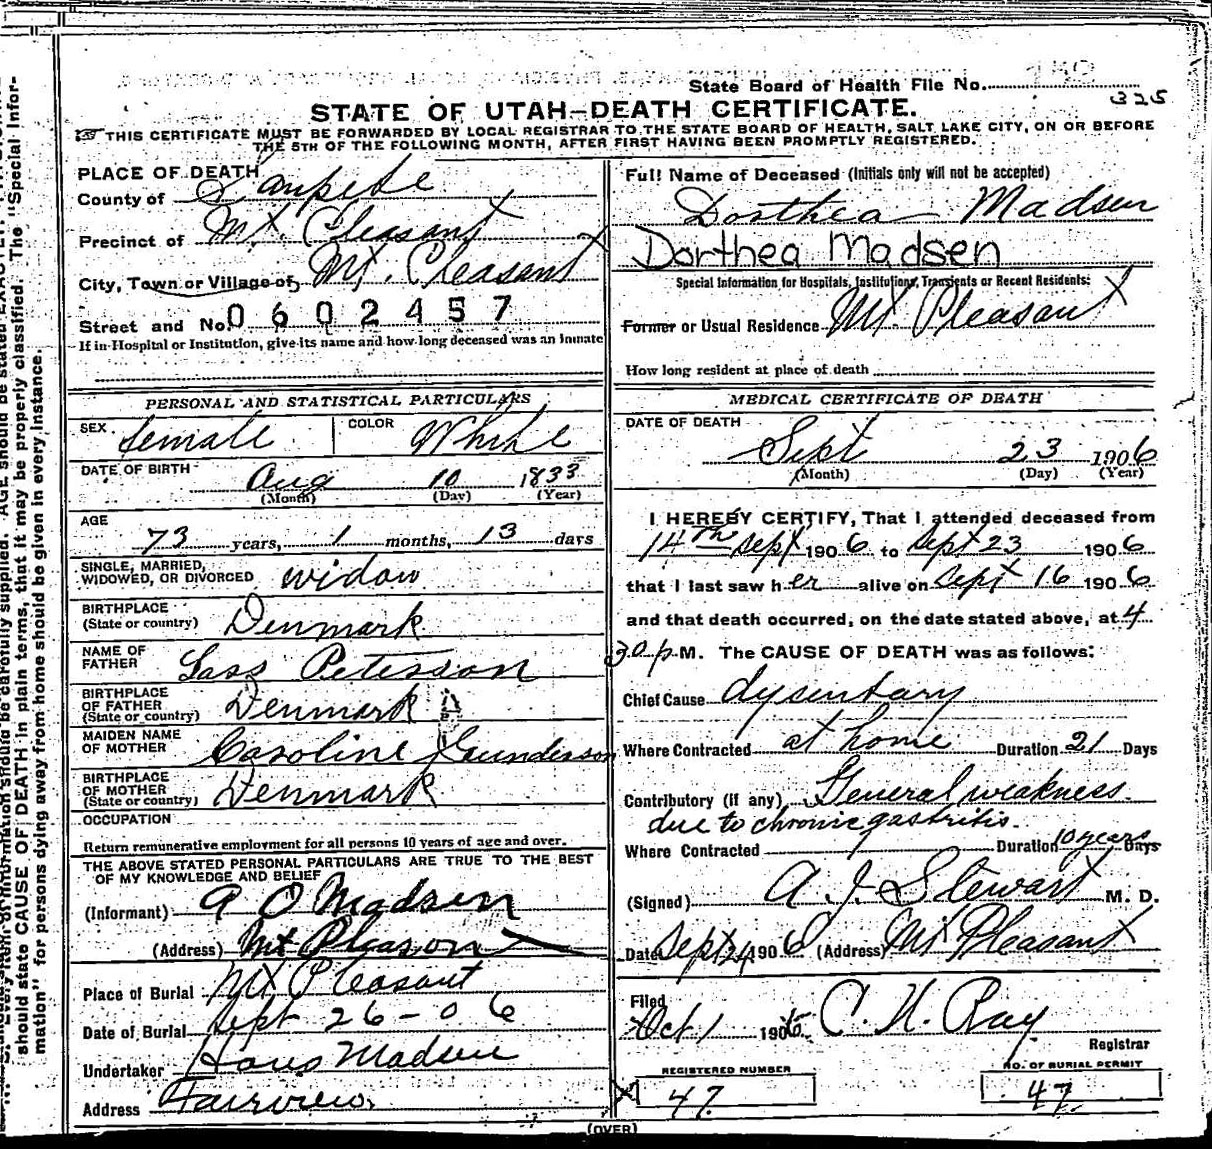 State Board of Health File No.
325
STATE OF UTAH—DEATH CERTIFICATE.
THIS CERTIFICATE MUST BE FORWARDED BY LOCAL REGISTRAR TO THE STATE BOARD OF HEALTH, SALT LAKE CITY, ON OR BEFORE
THE 5TH OF THE FOLLOWING MONTH, AFTER FIRST HAVING BEEN PROMPTLY REGISTERED.
PLACE OF DEATH
County of Sanpete
Precinct of Mt. Pleasant
City, Town or Village of Mt. Pleasant
Street and No. 0602457
If in Hospital or Institution, give its name and how long deceased was an inmate
PERSONAL AND STATISTICAL PARTICULARS
SEX female COLOR White
DATE OF BIRTH Aug 10 1833
(Month) (Day) (Year)
AGE
73 years, 1 months, 13 days
SINGLE, MARRIED,
WIDOWED, OR DIVORCED widow
BIRTHPLACE
(State or country) Denmark
NAME OF
FATHER Lass Peterson
BIRTHPLACE
OF FATHER
(State or country) Denmark
MAIDEN NAME
OF MOTHER Caroline Gunderson
BIRTHPLACE
OF MOTHER
(State or country) Denmark
OCCUPATION
Return remunerative employment for all persons 10 years of age and over.
THE ABOVE STATED PERSONAL PARTICULARS ARE TRUE TO THE BEST
OF MY KNOWLEDGE AND BELIEF
(Informant) A O Madsen
(Address) Mt Pleason
Place of Burial Mt Pleasant
Date of Burial Sept 26-06
Undertaker Hans Madsen
Address Fairview
Full Name of Deceased (Initials only will not be accepted)
Dorthea Madsen
Dorthea Madsen
Special Information for Hospitals, Institutions, Transients or Recent Residents:
Former or Usual Residence Mt. Pleasant
How long resident at place of death
MEDICAL CERTIFICATE OF DEATH
DATE OF DEATH
Sept 23 1906
(Month) (Day) (Year)
I HEREBY CERTIFY, That I attended deceased from
14th Sept 1906 to Sept 23 1906
that I last saw her alive on Sept 16 1906
and that death occurred, on the date stated above, at 4
30 p. M. The CAUSE OF DEATH was as follows:
Chief Cause dysentary
Where Contracted at home Duration 21 Days
Contributory (if any) General weakness
due to chronic gastritis.
Where Contracted Duration 10 years Days
(Signed) A J. Stewart M. D.
Date Sept 24 1906 (Address) Mt Pleasant
Filed
Oct 1 1906 C. N. Ray
Registrar
REGISTERED NUMBER
47
NO. OF BURIAL PERMIT
47
(OVER)
should state CAUSE OF DEATH in plain terms, that it may be properly classified. The "Special Infor-
mation" for persons dying away from home should be given in every instance.